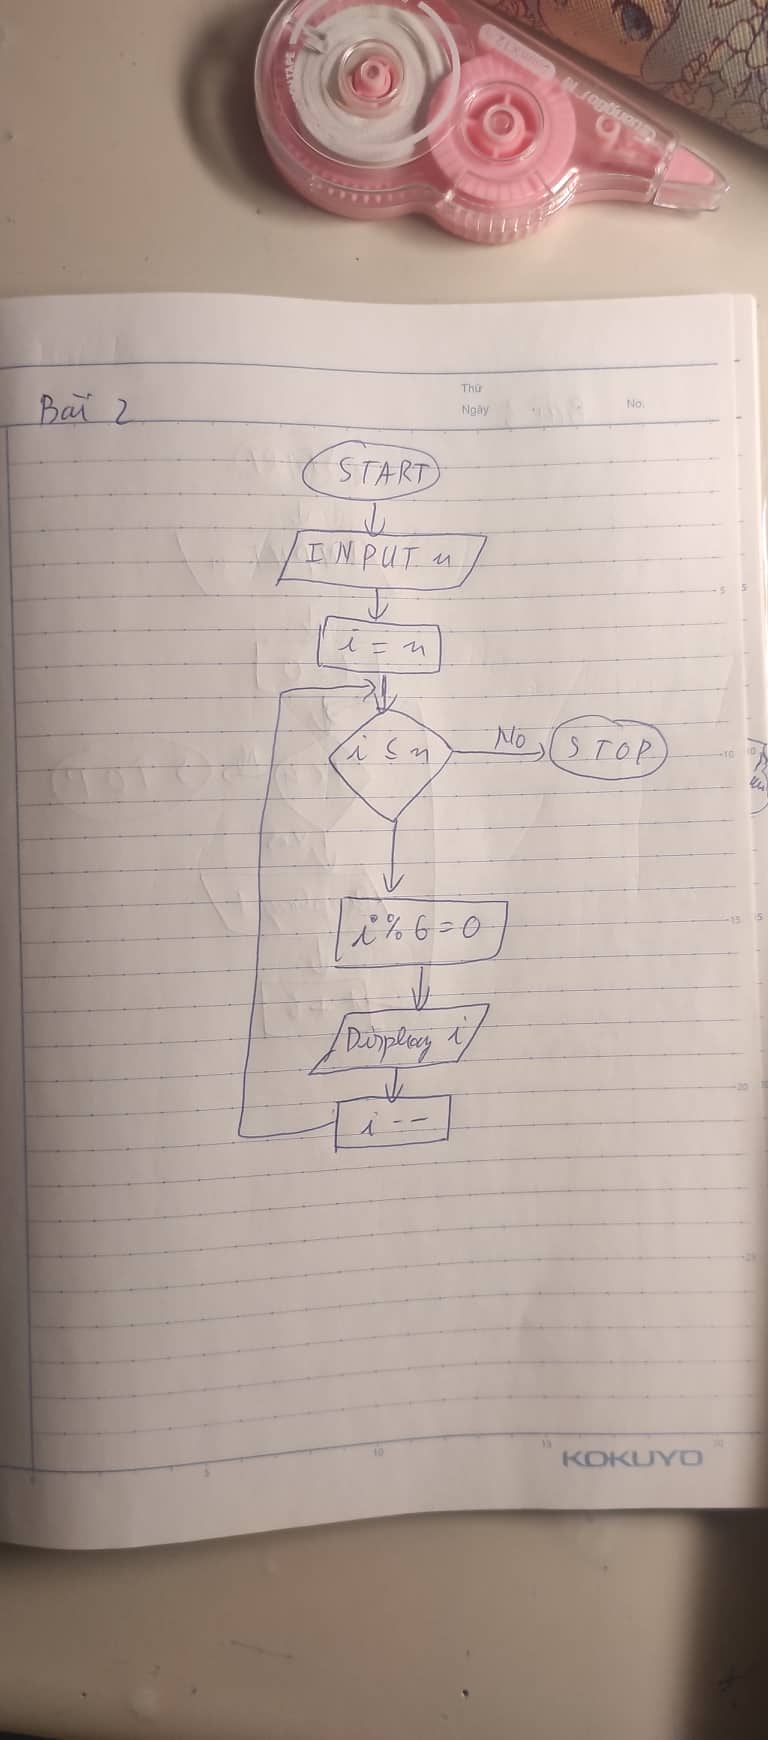 Thứ
Bài 2
Ngày
No.
START
INPUT n
i = n
i ≤ n
No
STOP
i % 6 = 0
Display i
i --
5
10
15
20
25
5
10
15
20
KOKUYO